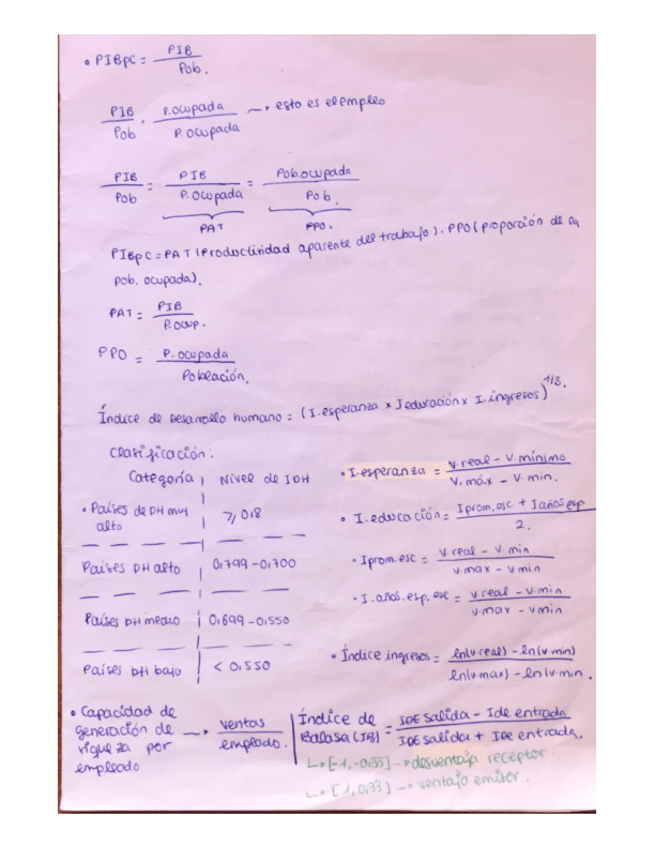 • PIBpc = PIB / Pob.
PIB / Pob · P.ocupada / P.ocupada → esto es el empleo
PIB / Pob = PIB / P.ocupada = Pob.ocupada / Pob.
PAT PPO.
PIBpc = PAT (Productividad aparente del trabajo) · PPO (proporción de la
pob. ocupada).
PAT = PIB / P.ocup.
PPO = P. ocupada / Población.
Índice de Desarrollo humano = (I.esperanza x I educación x I. ingresos)^1/3.
Clasificación:
Categoría Nivel de IDH
• Países de DH muy
alto ≥ 0'8
Países DH alto 0'799 - 0'700
Países DH medio 0'699 - 0'550
Países DH bajo < 0'550
• I.esperanza = V.real - V.mínimo / V.máx - V.min.
• I.educación = I prom.esc + I años esp / 2.
• I prom.esc = V.real - V.min / V.max - V.min
• I.años.esp.esc = V.real - V.min / V.max - V.min
• Índice ingresos = ln(v.real) - ln(v.min) / ln(v.max) - ln(v.min.
• Capacidad de
generación de
riqueza por
empleado → ventas / empleado.
Índice de
Balasa (IB) = IDE salida - Ide entrada / IDE salida + IDE entrada.
↳ [-1, -0'33] → desventaja receptor
↳ [1, 0'33] → ventaja emisor.